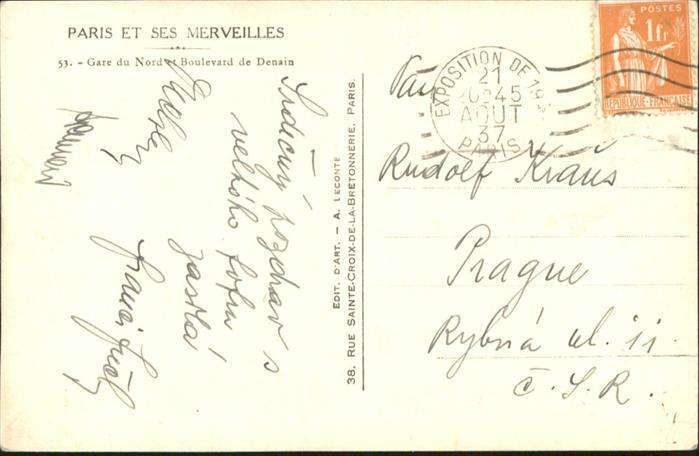 PARIS ET SES MERVEILLES
53. - Gare du Nord et Boulevard de Denain
Srdečný pozdrav s
velkého
zasílá
EDIT. D'ART. — A. LECONTE
38, RUE SAINTE-CROIX-DE-LA-BRETONNERIE, PARIS.
POSTES
1fr
RÉPUBLIQUE-FRANÇAISE
EXPOSITION DE 193
21
45
AOUT
37
PARIS
Pan
Rudolf Kraus
Prague
Rybná ul. 11.
Č.S.R.